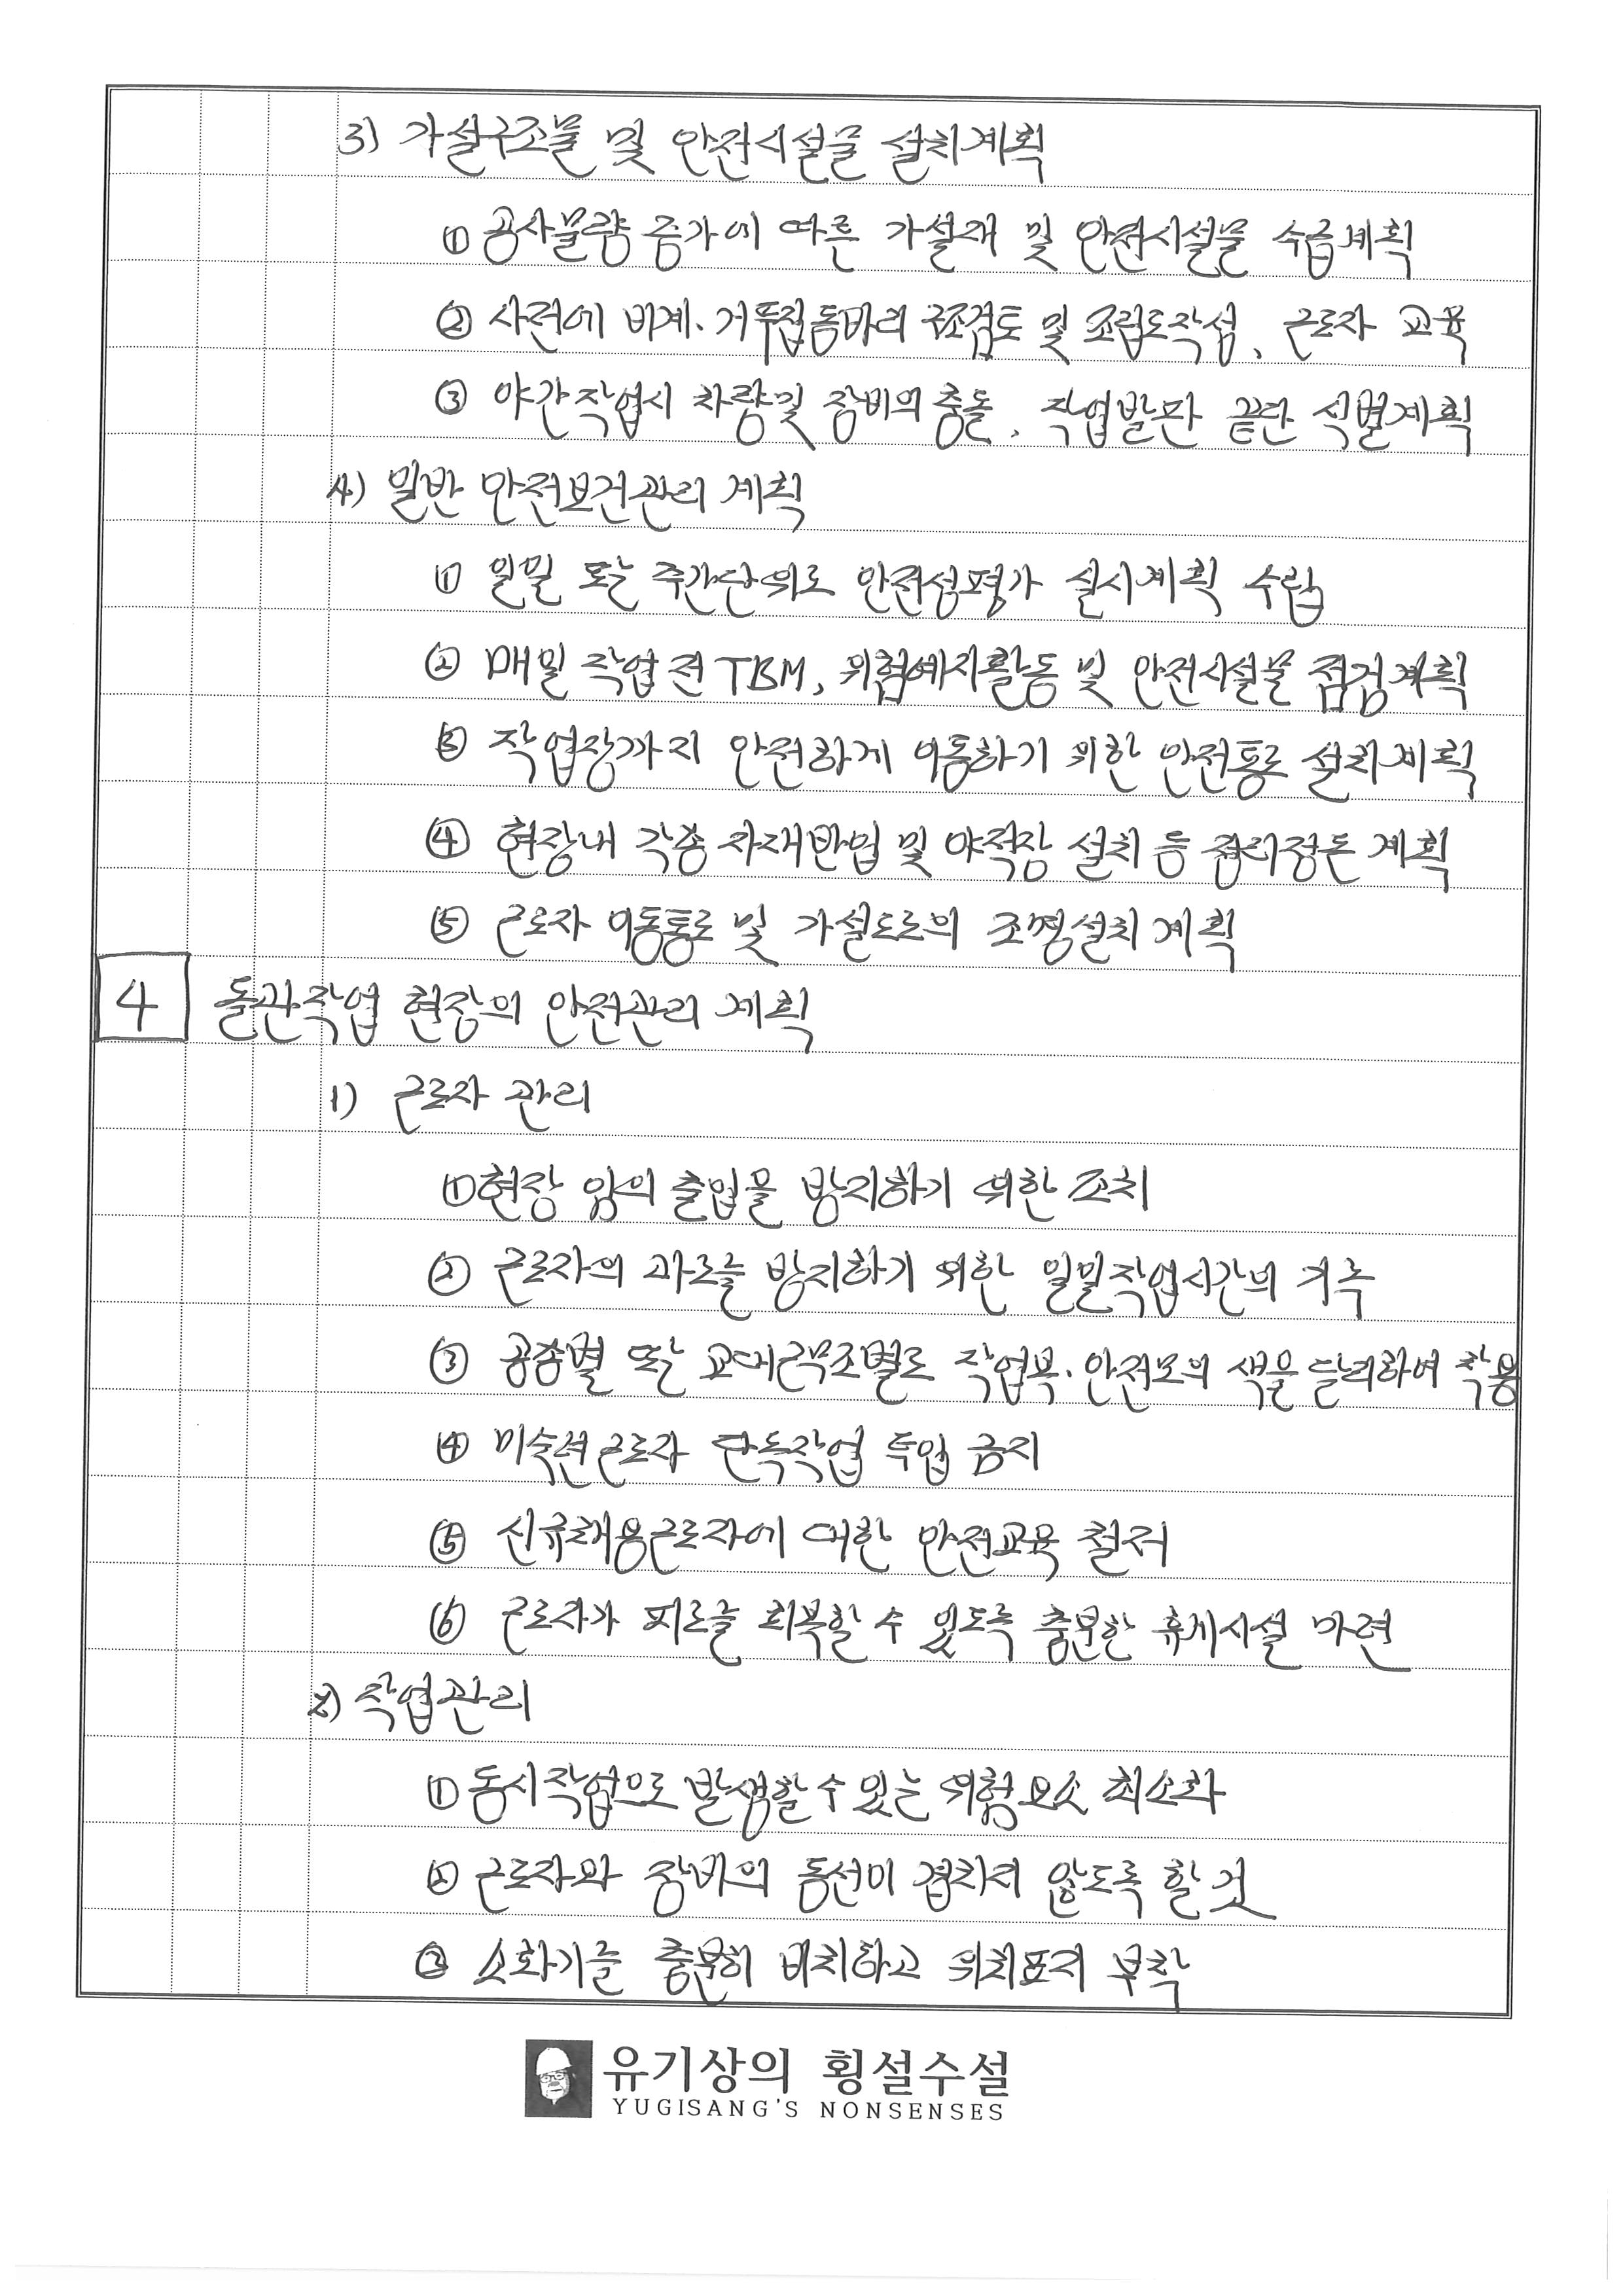 3) 가설구조물 및 안전시설물 설치계획
① 공사물량 증가에 따른 가설재 및 안전시설물 수급계획
② 사전에 비계·거푸집동바리 구조검토 및 조립도작성, 근로자 교육
③ 야간작업시 차량및 장비의 충돌, 작업발판 끝단 식별계획
4) 일반 안전보건관리 계획
① 일일 또는 주간단위로 안전성평가 실시계획 수립
② 매일 작업전 TBM, 위험예지활동 및 안전시설물 점검계획
③ 작업장까지 안전하게 이동하기 위한 안전통로 설치계획
④ 현장내 각종 자재반입 및 야적장 설치 등 정리정돈 계획
⑤ 근로자 이동통로 및 가설도로의 조명설치 계획
4 돌관작업 현장의 안전관리 계획
1) 근로자 관리
① 현장 임의 출입을 방지하기 위한 조치
② 근로자의 과로를 방지하기 위한 일일작업시간의 거축
③ 공종별 또는 교대근무조별로 작업복·안전모의 색을 달리하여 착용
④ 미숙련근로자 단독작업 투입 금지
⑤ 신규채용근로자에 대한 안전교육 철저
⑥ 근로자가 피로를 회복할 수 있도록 충분한 휴게시설 마련
2) 작업관리
① 동시작업으로 발생할 수 있는 위험요소 최소화
② 근로자와 장비의 동선이 겹치지 않도록 할 것
③ 소화기를 충분히 비치하고 위치표지 부착
유기상의 횡설수설
YUGISANG'S NONSENSES